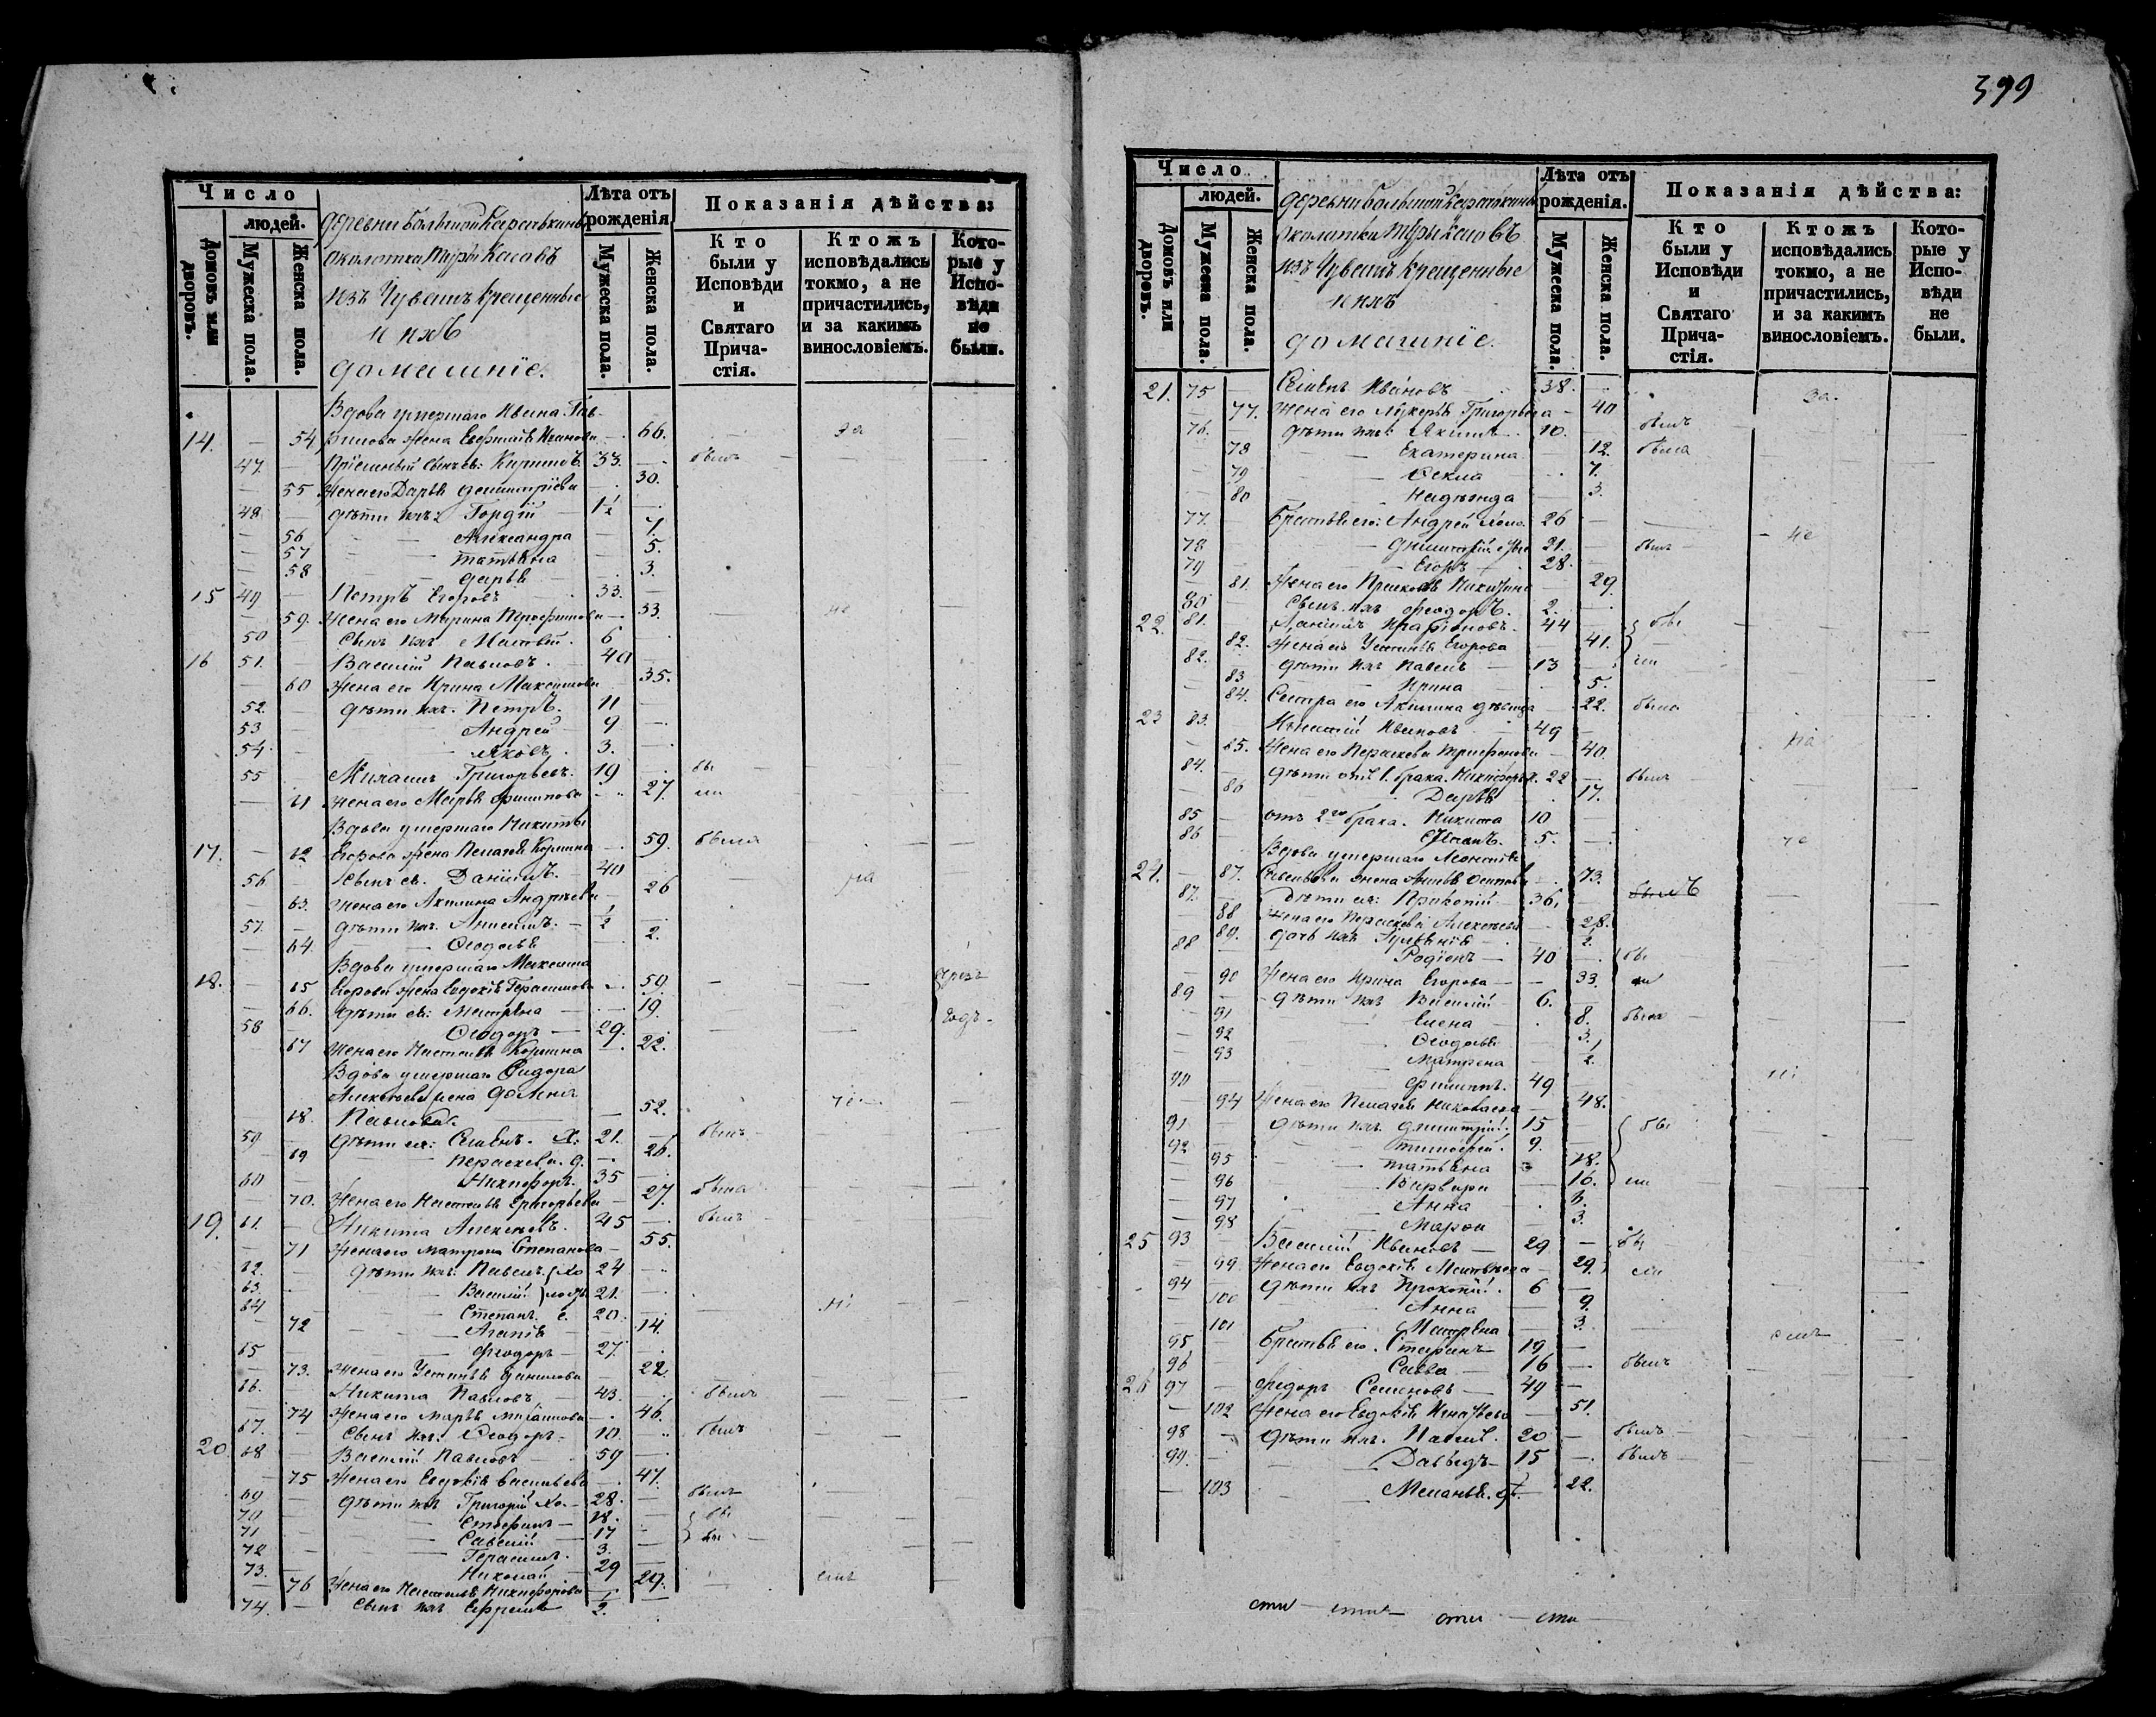 399
Число
людей.
Домовъ или дворовъ.
Мужеска пола.
Женска пола.
деревни Большой Карачькины
околотка Туры Касовъ
изъ Чувашъ крещенные
и ихъ
домашніе.
Лѣта отъ рожденія
Мужеска пола.
Женска пола.
Показанія дѣйства:
Кто были у Исповѣди и Святаго Причастія.
Ктожъ исповѣдались токмо, а не причастились, и за какимъ винословіемъ.
Которые у Исповѣди не были.
Вдова умершаго Ивана
14. — 54 жена Иванова — 66.
47. — Пріемный сынъ ея: Кириллъ 33. — былъ
— 55 Жена его Дарья Димитріева — 30.
48 — дѣти ихъ: Гордій 1/2 —
— 56 Александра — 7.
— 57 Татьяна — 5.
— 58 Дарья — 3.
15 49 — Петръ Егоровъ 33. —
— 59. Жена его Марина — 33.
50 — Сынъ ихъ Матвей 6 —
16 51. — Василій Павловъ. 40 —
— 60 Жена его Ирина Максимова 35.
52. — дѣти ихъ. Петръ. 11 —
53 — Андрей 9 —
54. — Яковъ 3. —
55 — Михаилъ Григорьевъ. 19 —
— 61 Жена его Марья Филипова — 27.
Вдова умершаго Никиты
17. — 62 Егорова жена Пелагея — 59. была
56 — Сынъ ея. Даніилъ. 40
— 63. Жена его Акилина Андреева 26
57. — дѣти ихъ. Анисимъ. — 1/2 —
— 64. Ѳеодосья — 2.
Вдова умершаго Максима
18. — 65 Егорова жена Евдокія Герасимова — 59.
— 66. дѣти ея: Матрена — 19.
58 — Ѳеодоръ — 29.
67 Жена его Настасья — 22.
Вдова умершаго Сидора
Алексеева жена
68. Павлова — 52.
59 — дѣти ея: Семенъ. Х. 21. — былъ
— 69 Параскева. д. — 26.
60 — Никифоръ. 35 —
— 70. Жена его Настасья Григорьева — 27. была
19. 61. — Никита Алексеевъ. 45 — былъ
— 71 Жена его Матрона Степанова — 55.
62. — дѣти ихъ: Павелъ. 24 —
63. Василій 21. —
64 Степанъ. 20. —
— 72 Агапія 14.
65 — Ѳеодоръ 27. —
— 73. Жена его Устинья Данилова 22
66. — Никита Павловъ 43. — былъ
— 74 Жена его Марья Михайлова — 46.
67. — Сынъ ихъ: Ѳеодоръ. 10. былъ
20 68 — Василій Павловъ 59 —
— 75 Жена его Евдокія Васильева 47.
69 — дѣти ихъ Григорій Хо. 28. — былъ
70 Стефанъ 18. —
71 Савелій 17 —
72 Герасимъ. 3. —
73. Николай 29
— 76 Жена его Настасья Никифорова 29.
74. — Сынъ ихъ Ефремъ 1/2. —
Число
людей.
Домовъ или дворовъ.
Мужеска пола.
Женска пола.
деревни Большой Карачькины
околотка Турыкасовъ
изъ Чувашъ крещенные
и ихъ
домашніе.
Лѣта отъ рожденія.
Мужеска пола.
Женска пола.
Показанія дѣйства:
Кто были у Исповѣди и Святаго Причастія.
Ктожъ исповѣдались токмо, а не причастились, и за какимъ винословіемъ.
Которые у Исповѣди не были.
21. 75 — Семенъ Ивановъ 38.
— 77. Жена его Лукерья Григорьева — 40
76. — дѣти ихъ: Якимъ 10. — былъ
— 78 Екатерина — 12. была
— 79 Ѳекла 7.
— 80 Надежда — 3.
77. — братья его: Андрей 26 —
78 — Димитрій 21. — былъ
79 — Егоръ 28.
— 81. Жена его Прасковья Никитина 29.
80 — Сынъ ихъ Ѳеодоръ. 2. —
22. 81. — 44 —
— 82. Жена его Устинья Егорова — 41.
82. — дѣти ихъ Павелъ 13 —
— 83 Ирина 5.
— 84. Сестра его Акилина дѣвица 22. была
23 83. Игнатій Ивановъ 49 —
— 85. Жена его Параскева Трифонова — 40.
84. — дѣти отъ 1. брака. Никифоръ 22 — былъ
— 86 Дарья 17.
85 — отъ 2го брака. Никита 10 —
86 — 5. —
Вдова умершаго
24. — 87. Савельева жена Анна Осипова 73.
87. — Дѣти ея: Прокопій 36, — былъ
— 88 Жена его Параскева Алексеева — 28.
— 89. дочь ихъ 2.
88 — Родіонъ — 40 —
— 90 Жена его Ирина Егорова — 33.
89 — дѣти ихъ Василій 6.
— 91 Елена 8. была
— 92 Ѳеодосья 3.
— 93 Матрена 1/2.
90 — Филиппъ. 49 —
— 94 Жена его Пелагея Николаева — 48.
91 — дѣти ихъ Димитрій. 15 —
92 Тимофей. 9.
— 95 Татьяна 18.
— 96 Варвара — 16.
— 97 Анна
— 98 Марѳа 3.
25 93 — Василій Ивановъ — 29 —
— 99. Жена его Евдокія Матвеева — 29.
94 — дѣти ихъ Прокопій. 6 —
— 100 Анна 9.
— 101 Матрена 3.
95 — братья его. Стефанъ 19 —
96 — Савва 16 — былъ
26 97 — Ѳедоръ Семеновъ 49 —
— 102 Жена его Евдокія Игнатьева 51.
98 — дѣти ихъ. Павелъ. 20 — былъ
99. — Давыдъ 15 — былъ
— 103 Меланья. дѣ. 22.